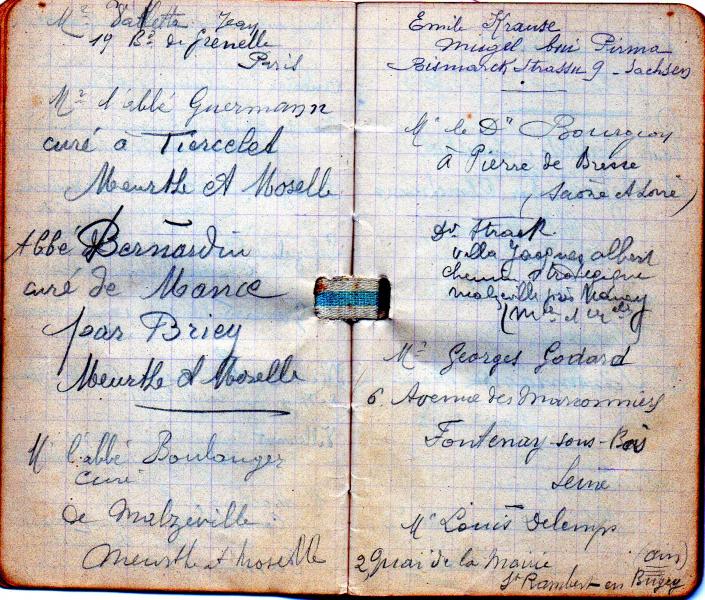 Mr Vallette Jean
19 Bd de Grenelle
Paris
Mr l'abbé Guermann
curé à Tiercelet
Meurthe et Moselle
Abbé Bernardin
curé de Mance
par Briey
Meurthe et Moselle
Mr l'abbé Boulanger
curé
de Malzéville
Meurthe et Moselle
Emile Krause
Mugel bei Pirma
Bismarck Strasse 9 - Sachsen
Mr le Dr Bourgeon
à Pierre de Bresse
(Saône et Loire)
Dr Strack
villa Jacques albert
chemin stratégique
malzéville près Nancy
(Mthe et Melle)
Mr Georges Godard
6 Avenue des Marronniers
Fontenay-sous-Bois
Seine
Mr Louis Delemps
2 Quai de la Mairie (Ain)
St Rambert en Bugey